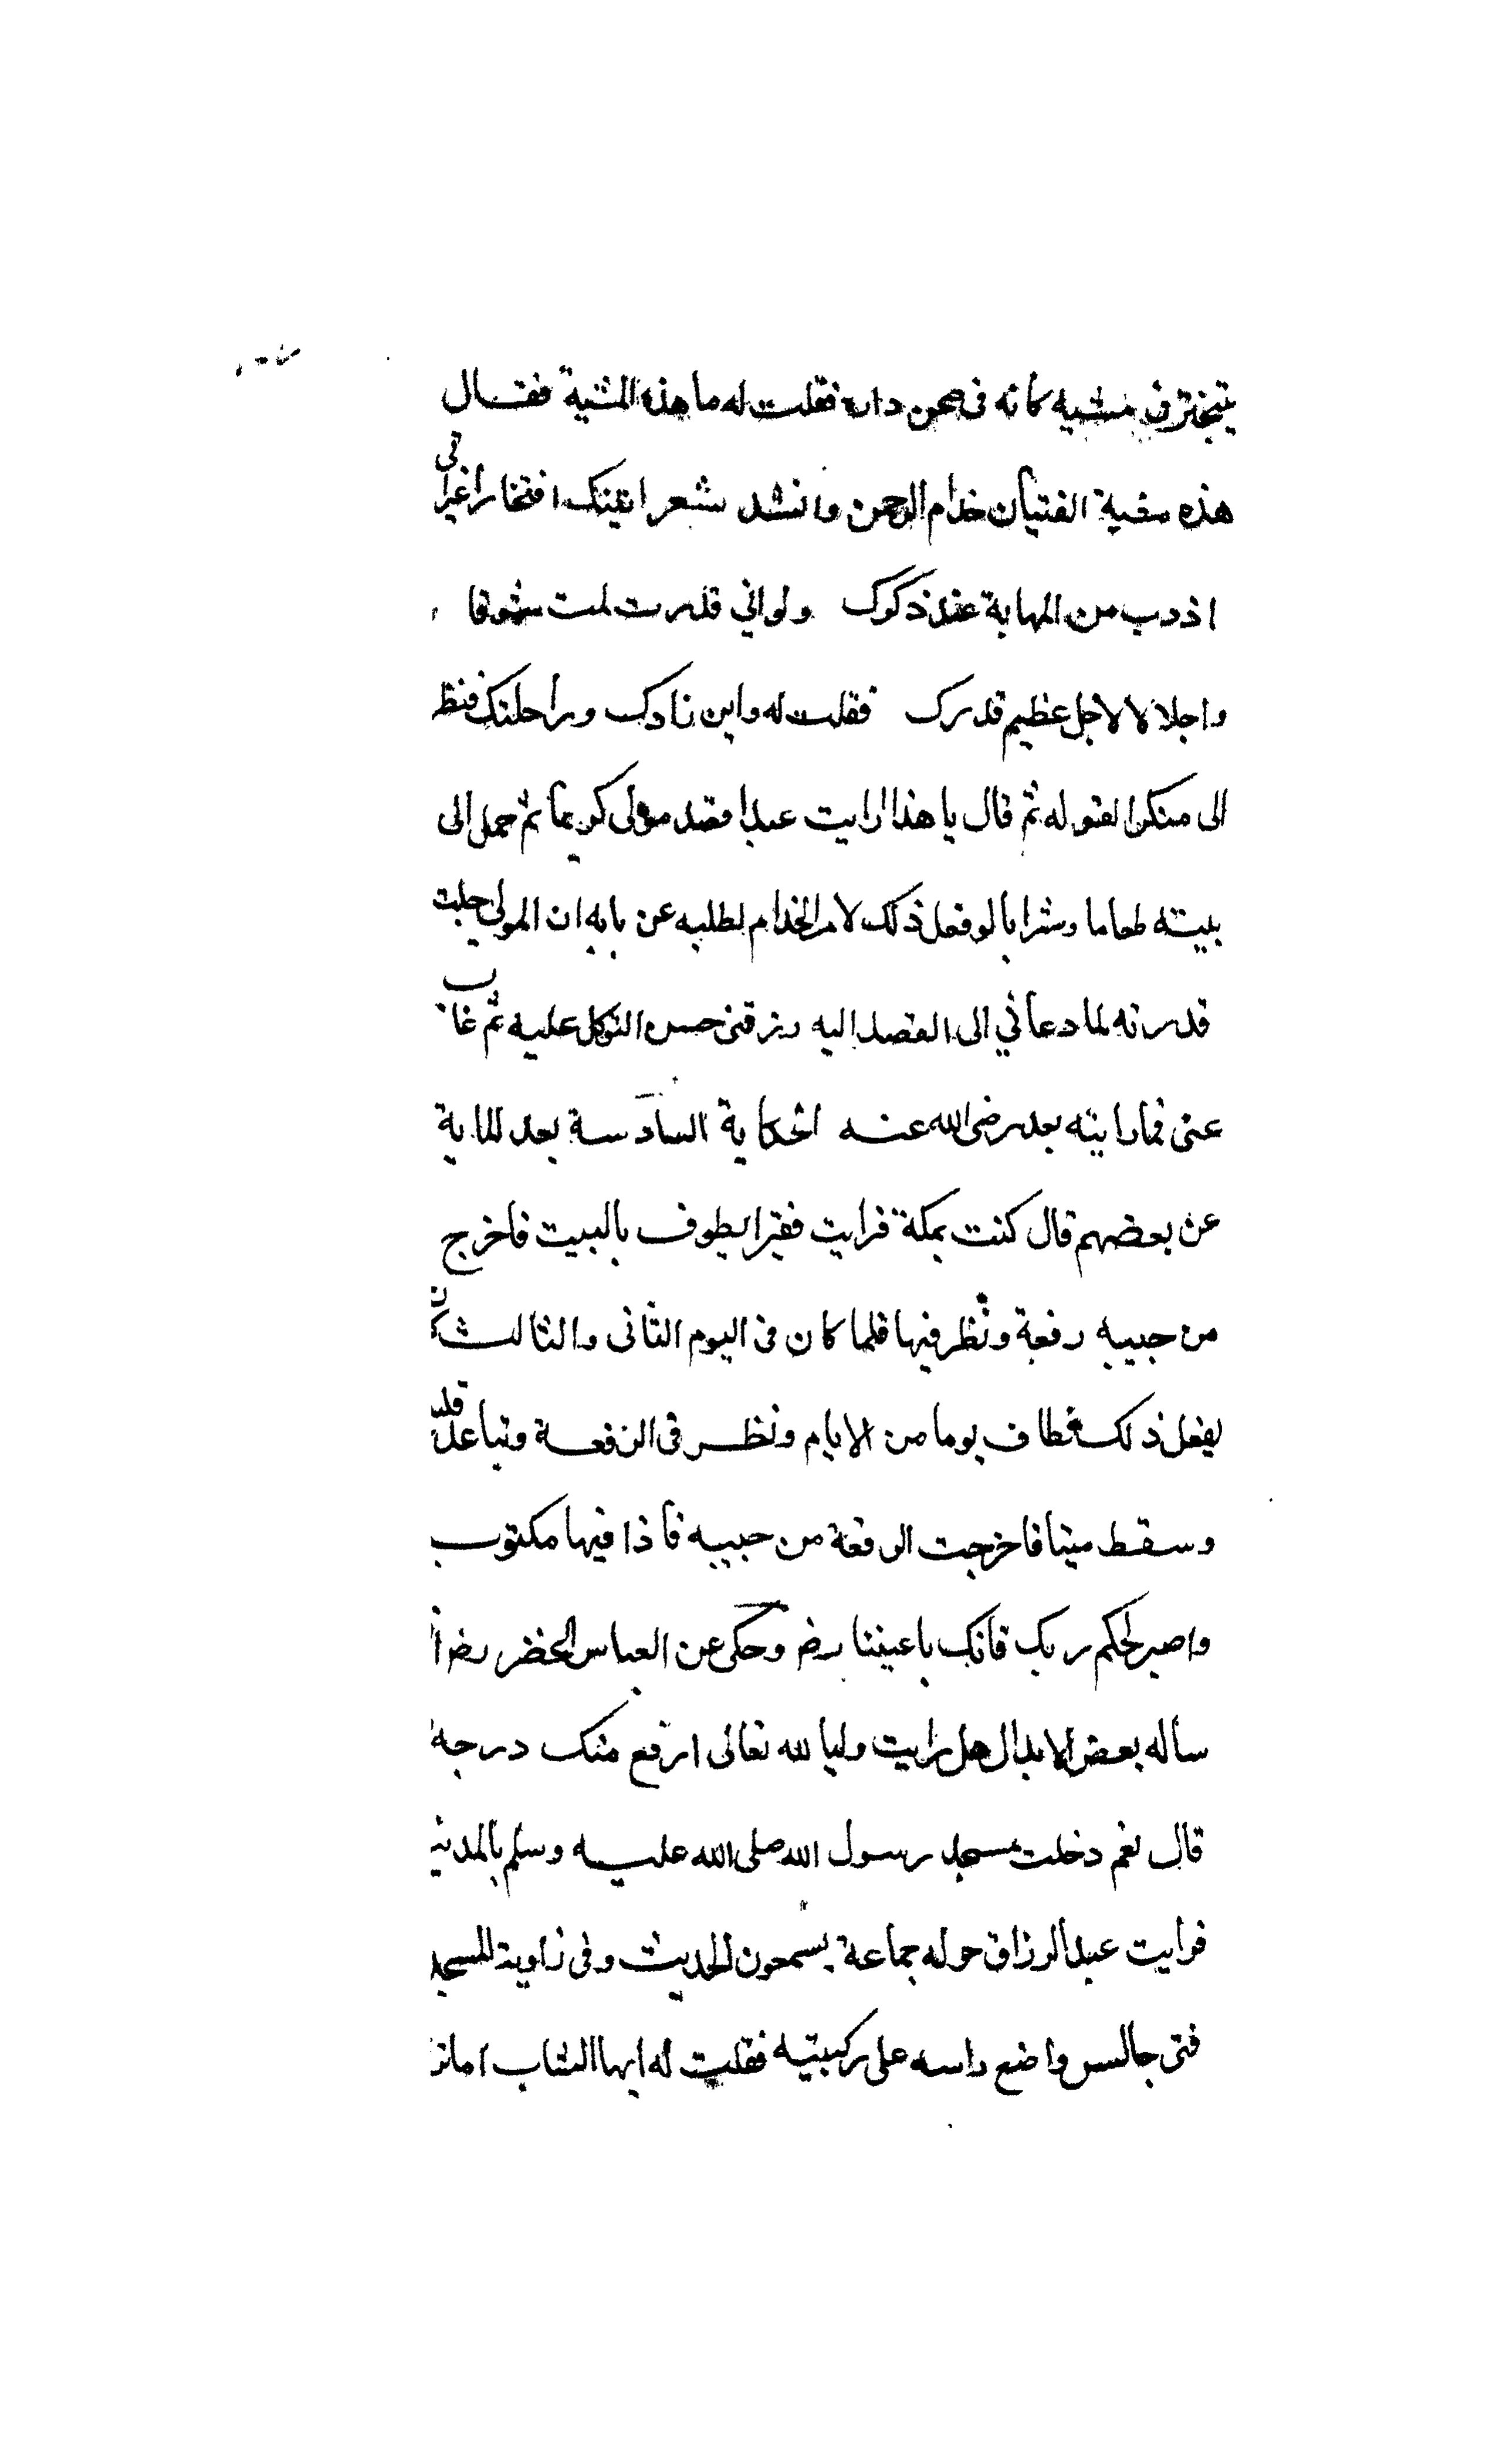 يتبختر في مشيه كانه فى صحن داره فقلت له ما هذه المشية فقال
هذه مشية الفتيان خدام الرحمن وانشد شعرا اتيتك افتخارا غير انى
اذوب من المهابة عند ذكرك ولو اني قدرت لمت شوقا
واجلالا لاجل عظيم قدرك فقلت له واين زادك وراحلتك فنظر
الى منكرا لقوله ثم قال يا هذا ارايت عبدا قصد مولى كريما ثم حمل الى
بيته طعاما وشرابا لو فعل ذلك لامر الخدام بطلبه عن بابه ان المولى جلت
قدرته لما دعاني الى القصد اليه رزقنى حسن التوكل عليه ثم غاب
عنى فما رايته بعد رضى الله عنه الحكاية السادسة بعد الماية
عن بعضهم قال كنت بمكة فرايت فقيرا يطوف بالبيت فاخرج
من جيبه رقعة ونظر فيها فلما كان فى اليوم الثانى والثالث كان
يفعل ذلك فطاف يوما من الايام ونظر فى الرقعة وتباعد قليلا
وسقط ميتا فاخرجت الرقعة من جيبه فاذا فيها مكتوب
واصبر لحكم ربك فانك باعيننا رضـ وحكى عن العباس الخضر رضـ ا
ساله بعض الابدال هل رايت وليا لله تعالى ارفع منك درجة
قال نعم دخلت مسجد رسول الله صلى الله عليه وسلم بالمدينة
فرايت عبد الرزاق حوله جماعة يسمعون الحديث وفى زاوية المسجد
فتى جالس واضع راسه على ركبيتيه فقلت له ايها الشاب اما تر